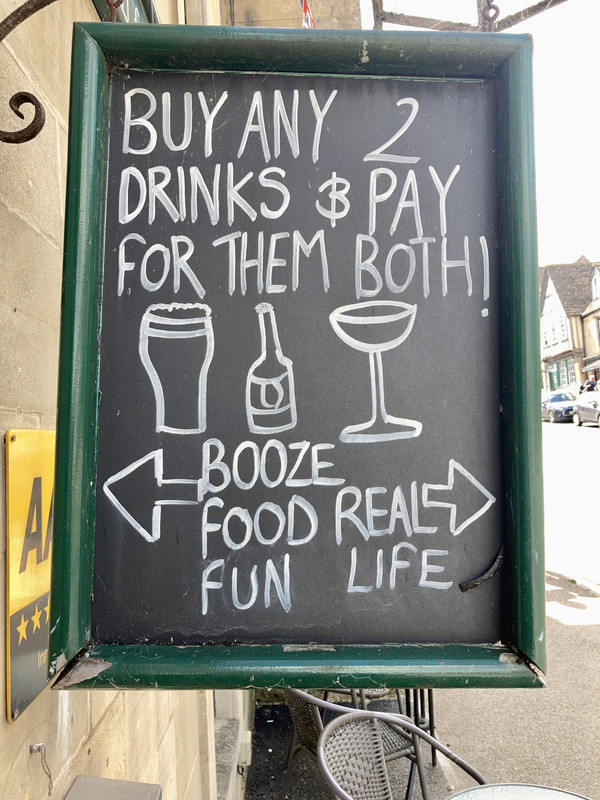 BUY ANY 2
DRINKS & PAY
FOR THEM BOTH!
BOOZE
FOOD
FUN
REAL
LIFE